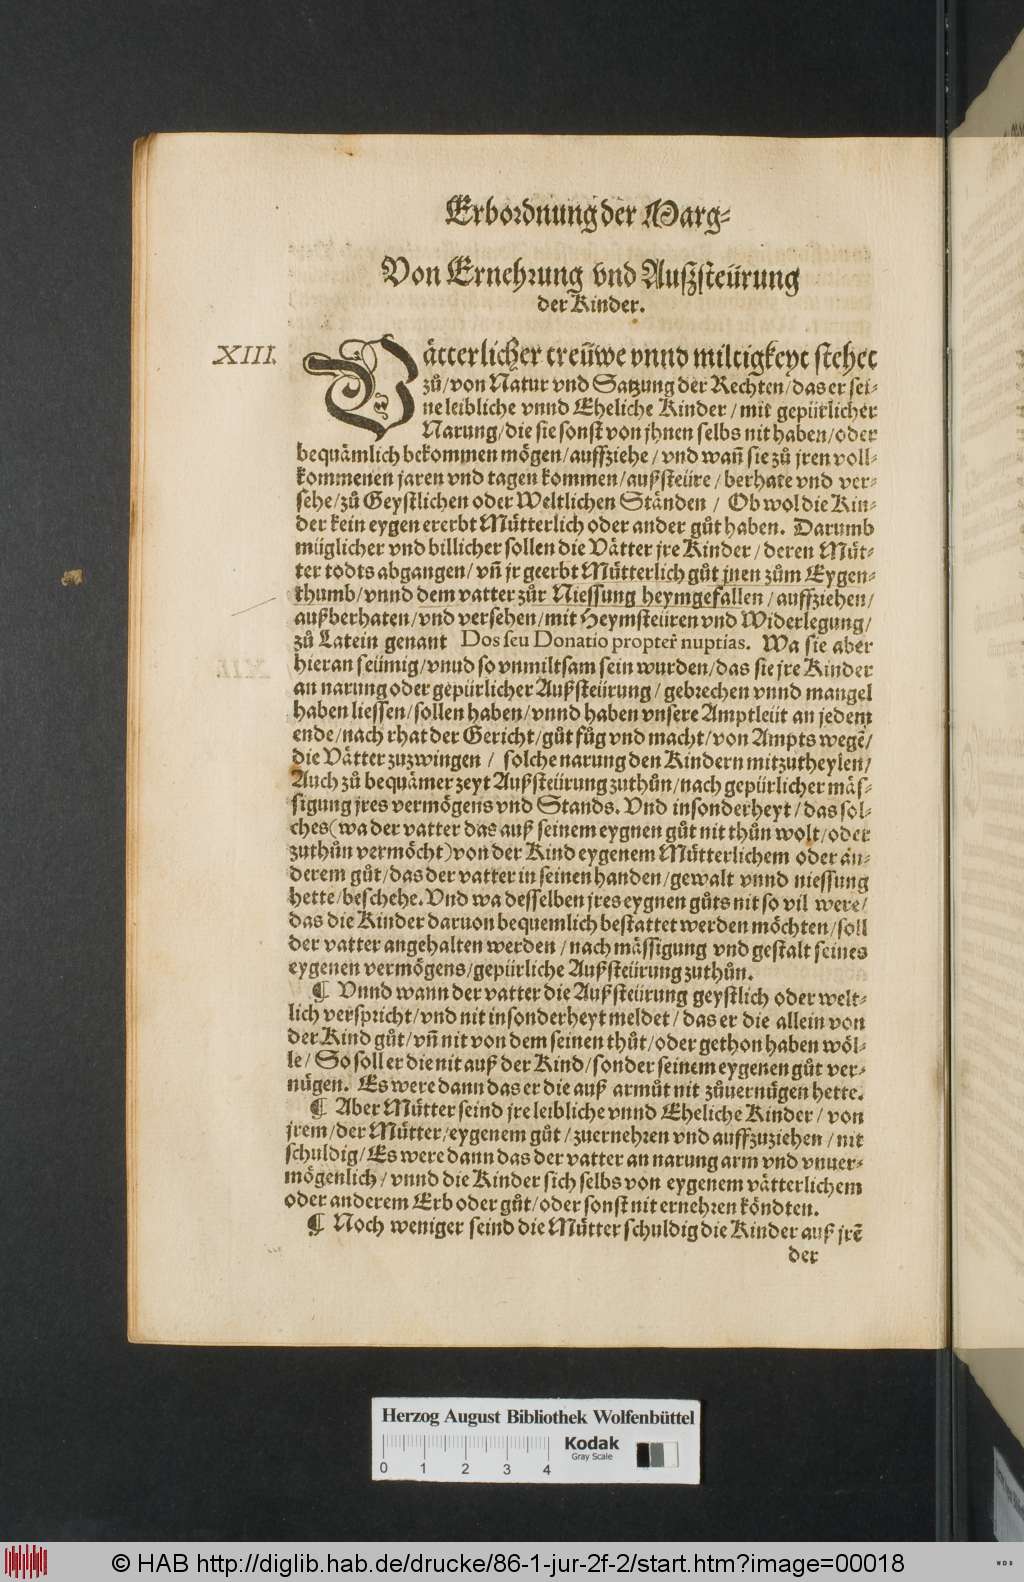 Erbordnung der Marg-
Von Ernehrung vnd Außsteürung
der Kinder.
XIII.
Vätterlicher treüwe vnnd miltigkeyt stehet
zů/von Natur vnd Satzung der Rechten/das er sei-
ne leibliche vnnd Eheliche Kinder/mit gepürlicher
Narung/die sie sonst von jhnen selbs nit haben/oder
bequämlich bekommen mögen/auffziehe/vnd wañ sie zů jren voll-
kommenen jaren vnd tagen kommen/außsteüre/berhate vnd ver-
sehe/zů Geystlichen oder Weltlichen Ständen/Ob wol die Kin-
der kein eygen ererbt Mütterlich oder ander gůt haben. Darumb
müglicher vnd billicher sollen die Vätter jre Kinder/deren Müt-
ter todts abgangen/vñ jr geerbt Mütterlich gůt jnen zům Eygen-
thumb/vnnd dem vatter zůr Niessung heymgefallen/auffziehen/
außberhaten/vnd versehen/mit Heymsteüren vnd Widerlegung/
zů Latein genant Dos seu Donatio propter nuptias. Wa sie aber
hieran seümig/vnnd so vnmiltsam sein wurden/das sie jre Kinder
an narung oder gepürlicher Außsteürung/gebrechen vnnd mangel
haben liessen/sollen haben/vnnd haben vnsere Amptleüt an jedem
ende/nach rhat der Gericht/gůt fůg vnd macht/von Ampts wegẽ/
die Vätter zuzwingen/solche narung den Kindern mitzutheylen/
Auch zů bequämer zeyt Außsteürung zuthůn/nach gepürlicher mäs-
sigung jres vermögens vnd Stands. Vnd insonderheyt/das sol-
ches(wa der vatter das auß seinem eygnen gůt nit thůn wolt/oder
zuthůn vermöcht)von der Kind eygenem Mütterlichem oder an-
derem gůt/das der vatter in seinen handen/gewalt vnnd niessung
hette/beschehe. Vnd wa desselben jres eygnen gůts nit so vil were/
das die Kinder daruon bequemlich bestattet werden möchten/soll
der vatter angehalten werden/nach mässigung vnd gestalt seines
eygenen vermögens/gepürliche Außsteürung zuthůn.
¶ Vnnd wann der vatter die Außsteürung geystlich oder welt-
lich verspricht/vnd nit insonderheyt meldet/das er die allein von
der Kind gůt/vñ nit von dem seinen thůt/oder gethon haben wöl-
le/So soll er die nit auß der Kind/sonder seinem eygenen gůt ver-
nügen. Es were dann das er die auß armůt nit zůuernügen hette.
¶ Aber Mütter seind jre leibliche vnnd Eheliche Kinder/von
jrem/der Mütter/eygenem gůt/zuernehren vnd auffzuziehen/nit
schuldig/Es were dann das der vatter an narung arm vnd vnuer-
mögenlich/vnnd die Kinder sich selbs von eygenem vätterlichem
oder anderem Erb oder gůt/oder sonst nit ernehren köndten.
¶ Noch weniger seind die Mütter schuldig die Kinder auß jrẽ
der
Herzog August Bibliothek Wolfenbüttel
0 1 2 3 4
Kodak
Gray Scale
© HAB http://diglib.hab.de/drucke/86-1-jur-2f-2/start.htm?image=00018
WDB